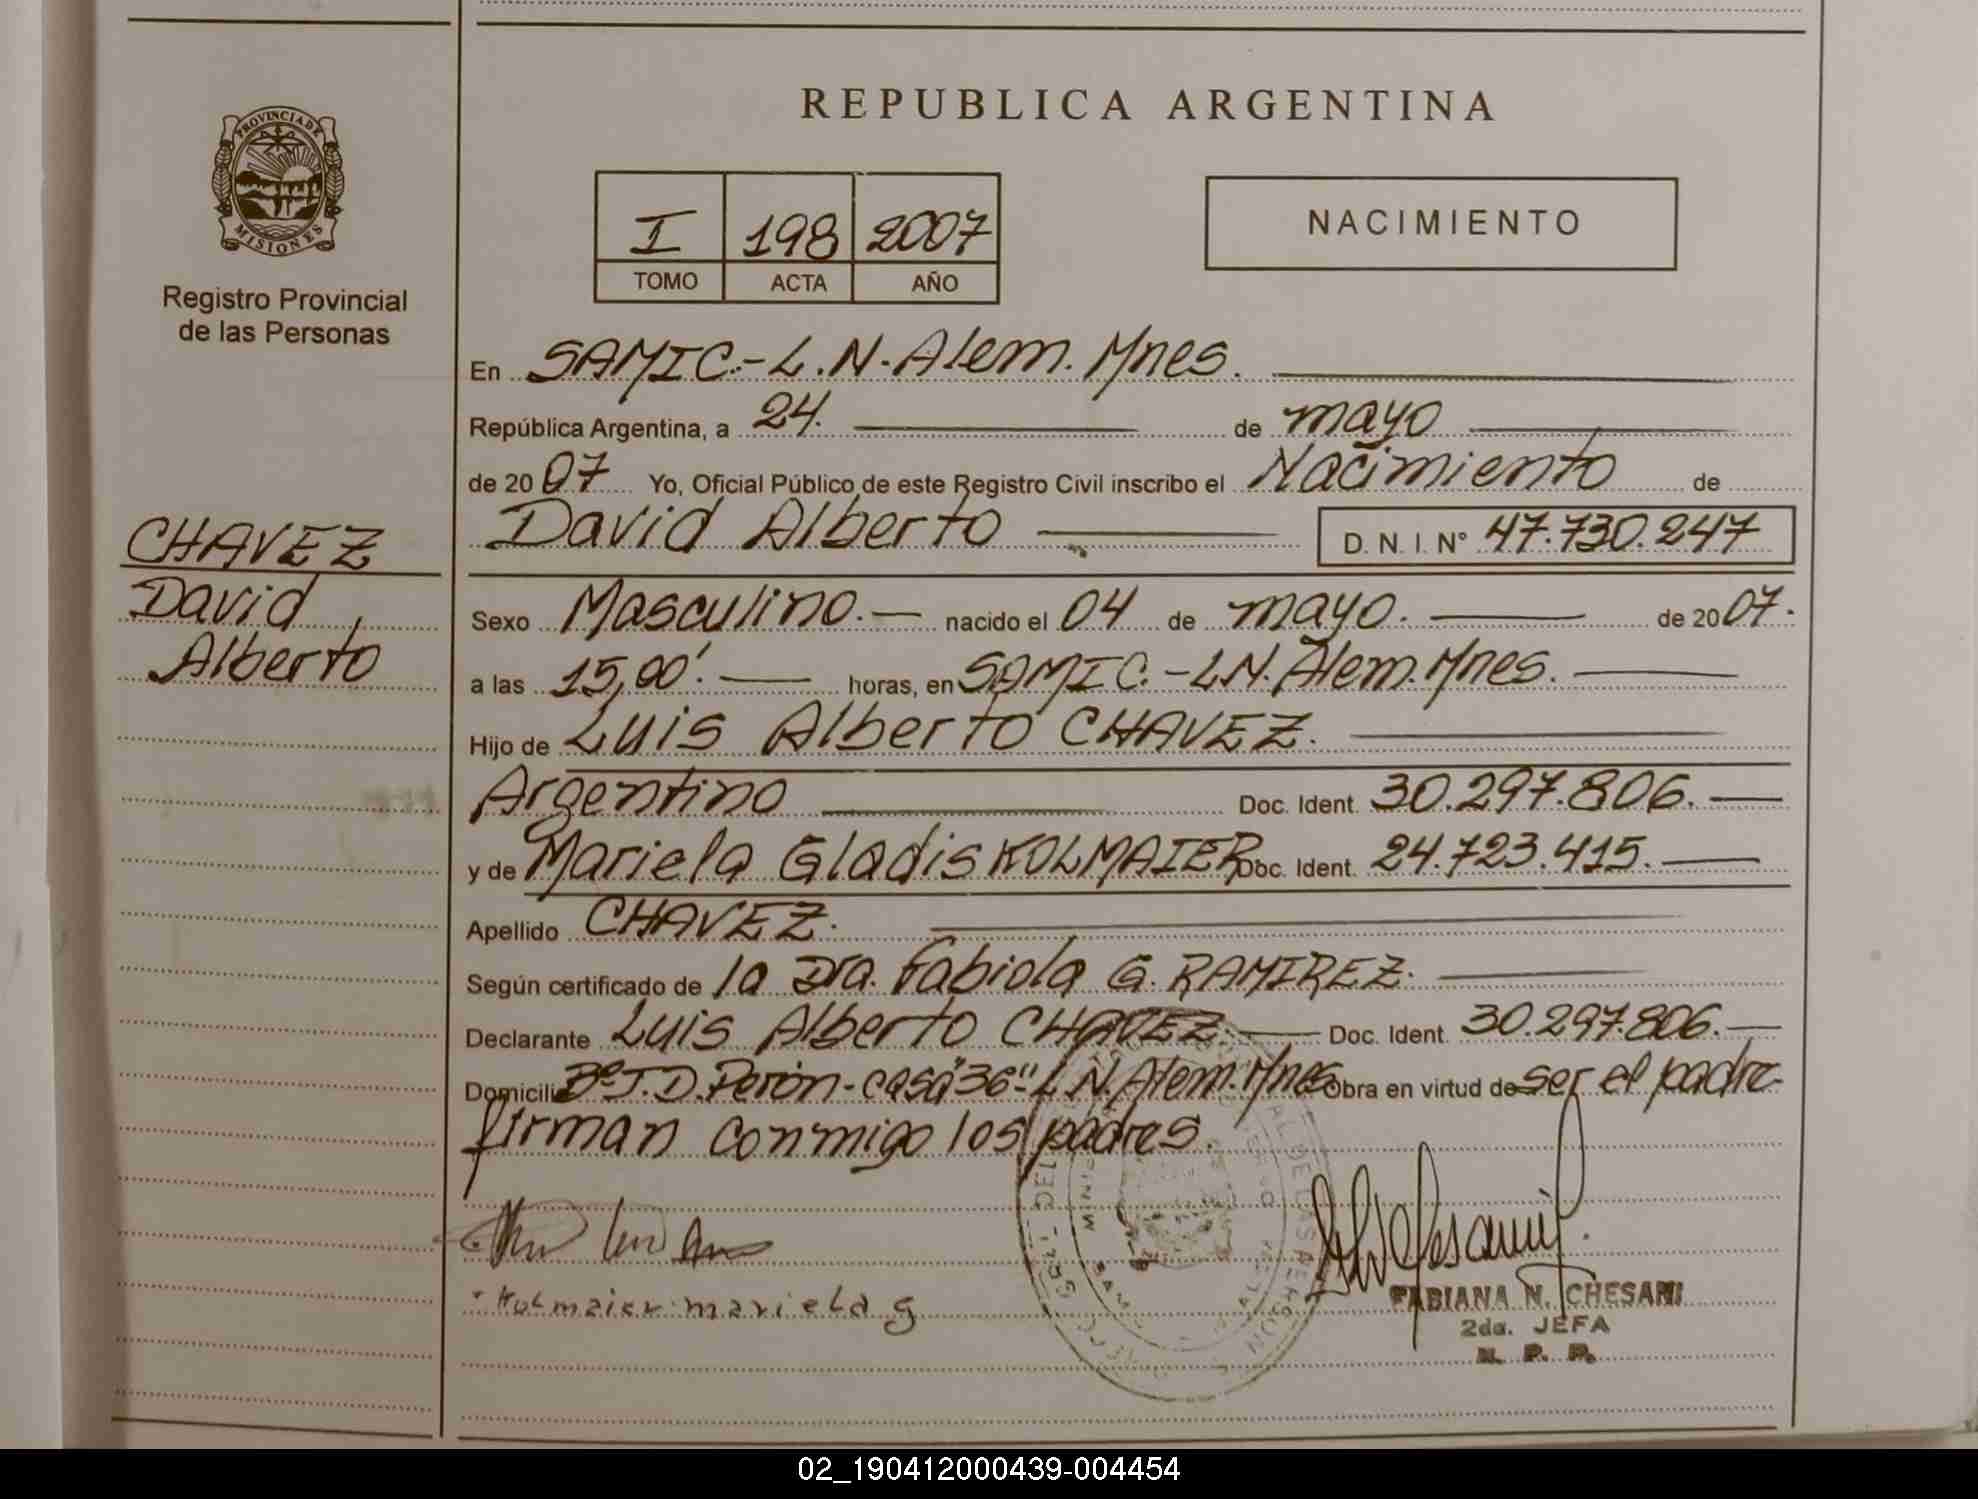 REPUBLICA ARGENTINA
PROVINCIA DE
MISIONES
Registro Provincial
de las Personas
I 198 2007
TOMO ACTA AÑO
NACIMIENTO
En SAMIC.-L.N.Alem.Mnes.
República Argentina, a 24. de mayo
de 2007 Yo, Oficial Público de este Registro Civil inscribo el Nacimiento de
David Alberto D. N. I. N° 47.730.247
CHAVEZ
David
Alberto
Sexo Masculino.- nacido el 04 de mayo. de 2007.
a las 15,00'. horas, en SAMIC.-LN.Alem.Mnes.
Hijo de Luis Alberto CHAVEZ.
Argentino Doc. Ident. 30.297.806.
y de Mariela Gladis KOLMAIER Doc. Ident. 24.723.415.
Apellido CHAVEZ.
Según certificado de la Dra. Fabiola G. RAMIREZ.
Declarante Luis Alberto CHAVEZ. Doc. Ident. 30.297.806.
Domicilio B° J.D.Perón-casa"36".-L.N.Alem.Mnes Obra en virtud de ser el padre
firman conmigo los padres.
Kolmaier mariela g
FABIANA N. CHESANI
2da. JEFA
R. P. P.
02_190412000439-004454